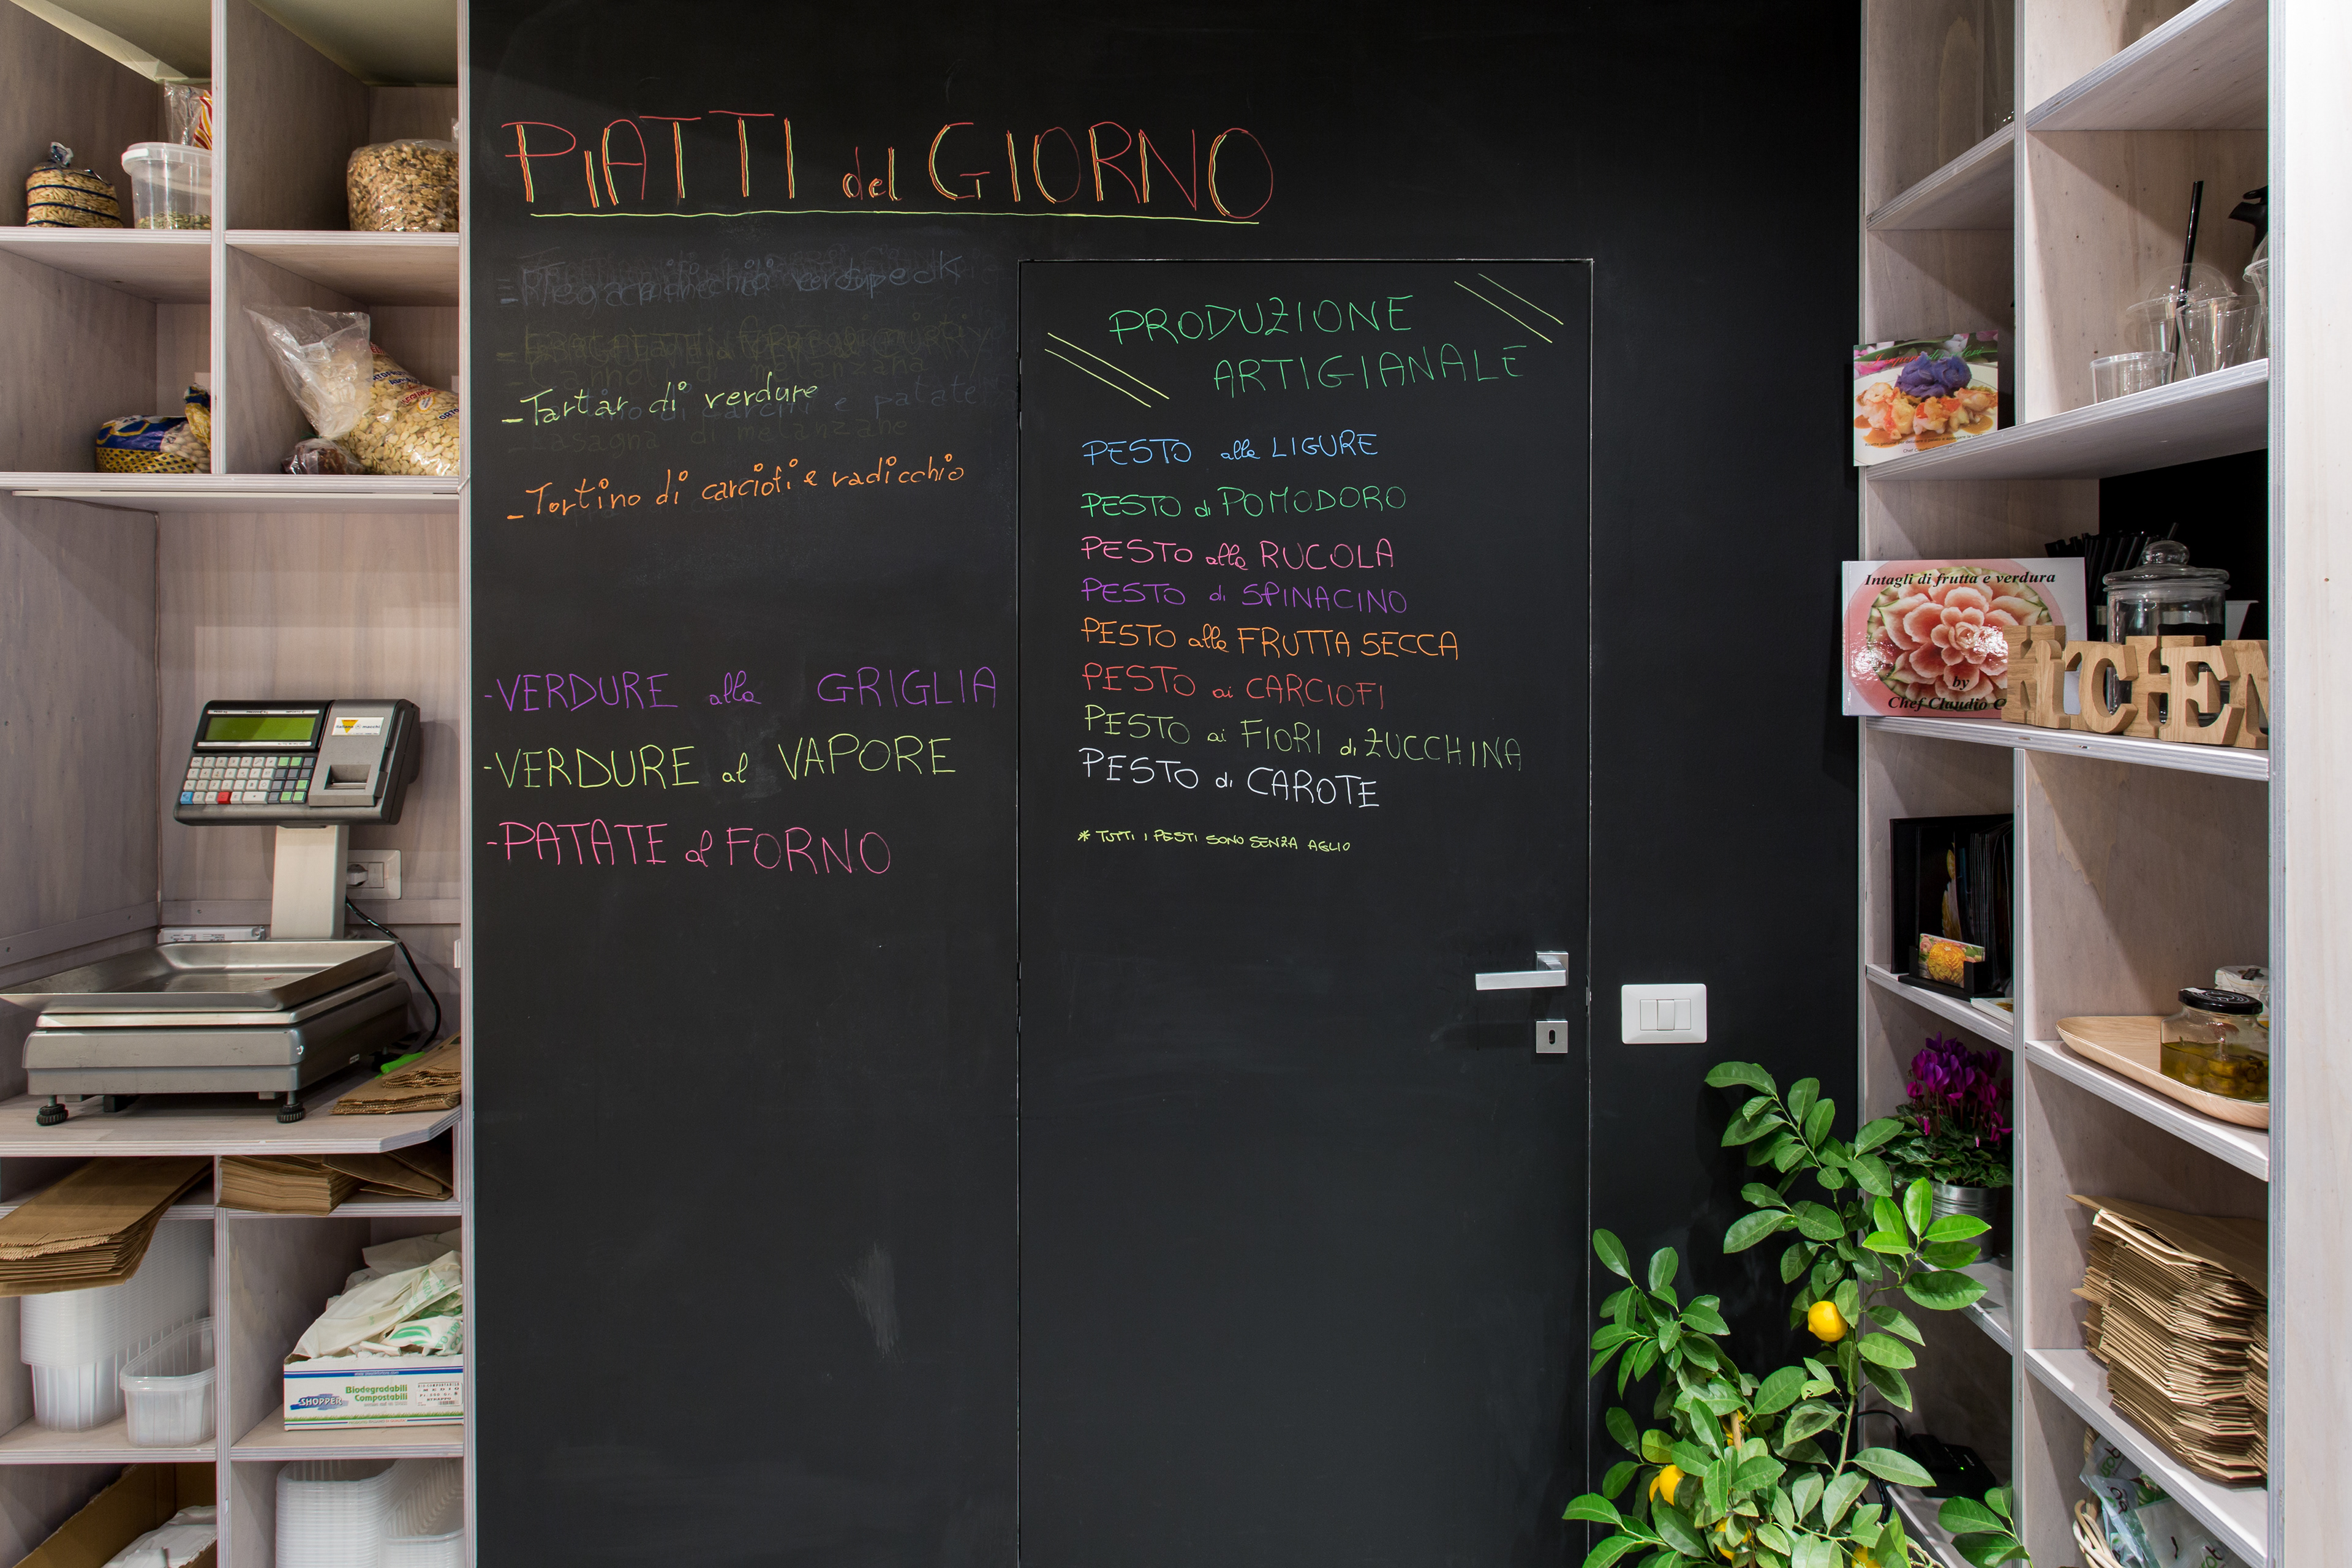 PIATTI del GIORNO
-Tartar di verdure
Lasagna di melanzane
-Tortino di carciofi e radicchio
-VERDURE alla GRIGLIA
-VERDURE al VAPORE
-PATATE al FORNO
PRODUZIONE
ARTIGIANALE
PESTO alla LIGURE
PESTO di POMODORO
PESTO alla RUCOLA
PESTO di SPINACINO
PESTO alla FRUTTA SECCA
PESTO ai CARCIOFI
PESTO ai FIORI di ZUCCHINA
PESTO di CAROTE
* TUTTI I PESTI SONO SENZA AGLIO
Intagli di frutta e verdura
by
Chef Claudio
KITCHEN
SHOPPER
Biodegradabili
Compostabili